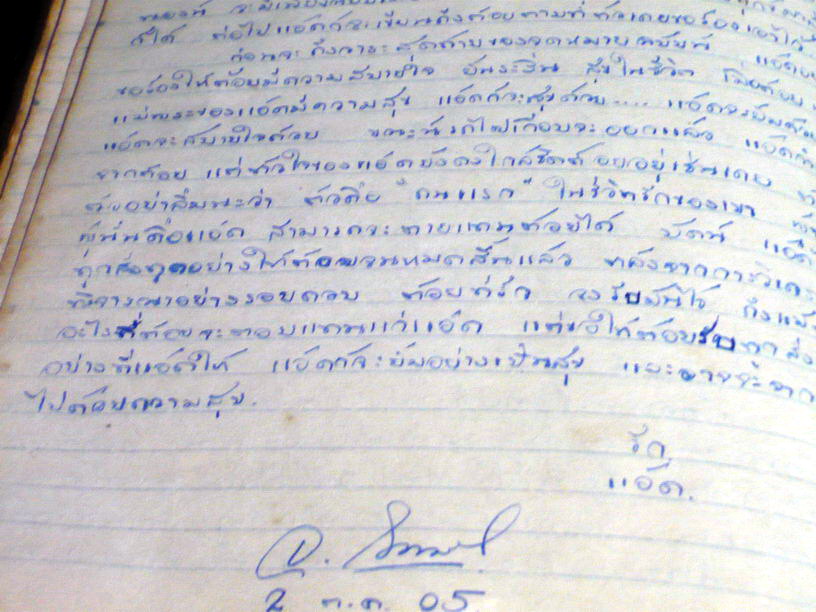 ก็ได้ ต่อไปแอ๊ดก็จะเขียนถึงต้อยตามที่
ก่อนจะถึงวาระสุดท้ายของจดหมายฉบับนี้
ขอร้องให้ต้อยมีความสบายใจ ชื่นระรื่น สุขในชีวิต
แม่พระของแอ๊ดมีความสุข แอ๊ดก็จะสุขด้วย.... แอ๊ดจะ
แอ๊ดจะสบายใจด้วย ขณะนี้รถไฟเกือบจะออกแล้ว แอ๊ด
จากต้อย แต่หัวใจของแอ๊ดยังคงใกล้ชิดต้อยอยู่เช่นเคย
ต้อยอย่าลืมนะว่า ตัวคือ "คนแรก" ในชีวิตรักของเขา
ผู้นั้นคือแอ๊ด สามารถจะตายแทนต้อยได้ บัดนี้ แอ๊ด
ทุกสิ่งทุกอย่างให้ต้อยจนหมดสิ้นแล้ว หลังจากการ
พิจารณาอย่างรอบคอบ ต้อยที่รัก จงรับมันไว้ ถึงแม้
อะไรที่ต้อยจะตอบแทนแก่แอ๊ด แต่ขอให้ต้อยรับทุกสิ่ง
อย่างที่แอ๊ดให้ แอ๊ดก็จะยิ้มอย่างเป็นสุข และอาจจะจาก
ไปด้วยความสุข.
รัก
แอ๊ด.
2 ต.ค. 05